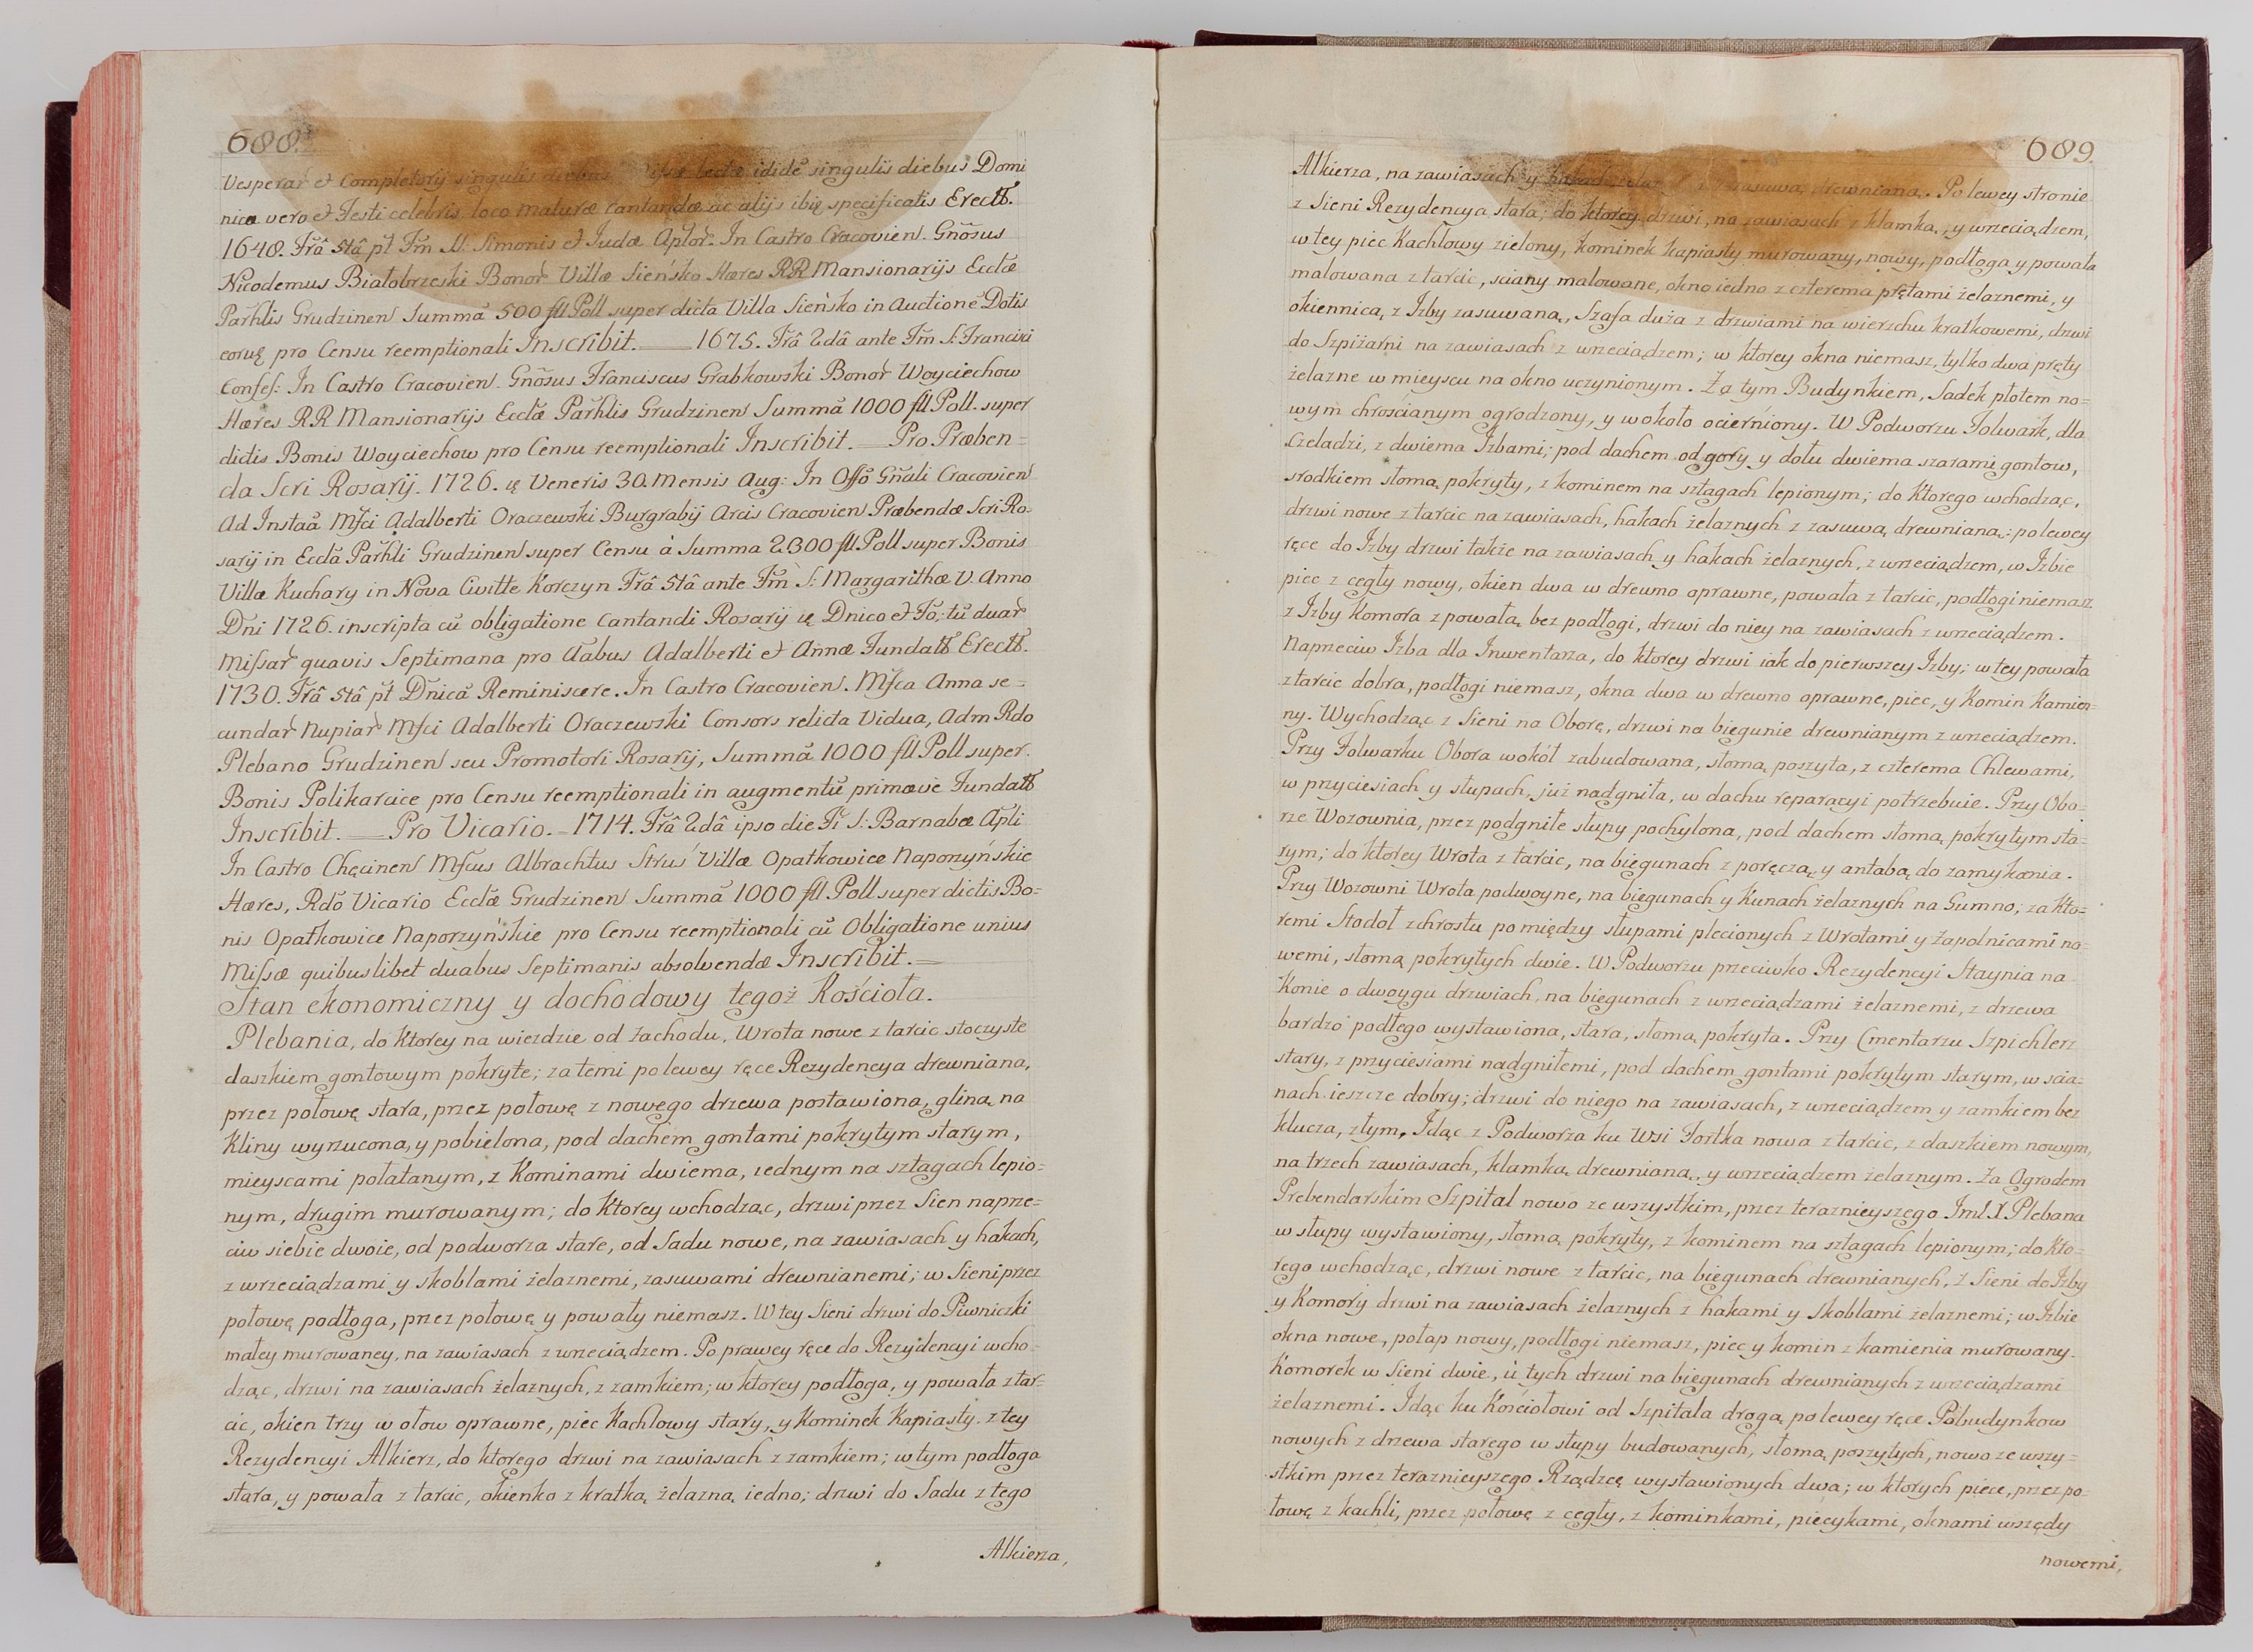 688.
Vesperar et Completorij singulis diebus Missæ lectæ ididẽ singulis diebus Domi
nicæ vero et Festi celebris loco maturæ cantandæ ac alijs ibię specificatis Erectt.
1648. Frâ 5tâ pt Fm S: Simonis et Judæ Apłor. In Castro Cracovien. Gnõsus
Nicodemus Białobrzeski Bonor Villæ Sieńsko Hæres RR Mansionarijs Ecclæ
Parhlis Grudzinen Summã 500 fll Poll super dicta Villa Sieńsko in Auctionẽ Dotis
eoruę pro Censu reemptionali Inscribit. — 1675. Frâ 2dâ ante Fm S: Francisci
Confes: In Castro Cracovien. Gnõsus Franciscus Grabkowski Bonor Woyciechow
Hæres RR Mansionarijs Ecclæ Parhlis Grudzinen Summã 1000 fll Poll. super
dictis Bonis Woyciechow pro Censu reemptionali Inscribit. — Pro Præben=
da Scri Rosarij. 1726. ię Veneris 30. Mensis Aug: In Offõ Gnãli Cracovien
Ad Instaã Mfci Adalberti Oraczewski Burgrabij Arcis Cracovien Præbendæ Scri Ro=
sarij in Eccla Parhli Grudzinen super Censu à Summa 2300 fll Poll super Bonis
Villæ Kuchary in Nova Civitte Korczyn Frâ 5tâ ante Fm S: Margarithæ V. Anno
Dni 1726. inscripta cũ obligatione Cantandi Rosarij ię Dnico et Fõ; tũ duar
Missar quavis Septimana pro Aabus Adalberti et Annæ Fundatt Erectt.
1730. Frâ 5tâ pt Dnicã Reminiscere. In Castro Cracovien. Mfca Anna se=
cundar Nupiar Mfci Adalberti Oraczewski Consors relicta Vidua, Adm Rdo
Plebano Grudzinen seu Promotori Rosarij, Summã 1000 fll Poll super
Bonis Polikarcice pro Censu reemptionali in augmentũ primævæ Fundatt
Inscribit. — Pro Vicario. — 1714. Frâ 2dâ ipso die Fi S: Barnabæ Apli
In Castro Chęcinen Mfcus Albrachtus Struś Villæ Opatkowice Naporzyńskie
Hæres, Rdõ Vicario Ecclæ Grudzinen Summã 1000 fll Poll super dictis Bo=
nis Opatkowice Naporzyńskie pro Censu reemptionali cũ Obligatione unius
Missæ quibuslibet duabus Septimanis absolvendæ Inscribit. —
Stan ekonomiczny y dochodowy tegoż Kościoła.
Plebania, do Ktorey na wiezdzie od Zachodu, Wrota nowe z tarcic stoczyste
daszkiem gontowym pokryte; za temi po lewey ręce Rezydencya drewniana,
przez połowę stara, przez połowę z nowego drzewa postawiona, gliną na
Kliny wyrzucona, y pobielona, pod dachem gontami pokrytym starym,
mieyscami połatanym, z Kominami dwiema, iednym na sztagach lepio=
nym, drugim murowanym; do Ktorey wchodząc, drzwi przez Sien naprze=
ciw siebie dwoie, od podworza stare, od Sadu nowe, na zawiasach y hakach,
z wrzeciądzami y skoblami żelaznemi, zasuwami drewnianemi; w Sieni przez
połowę podłoga, przez połowę y powały niemasz. W tey Sieni drzwi do Piwniczki
małey murowaney, na zawiasach z wrzeciądzem. Po prawey ręce do Rezydencyi wcho=
dząc, drzwi na zawiasach żelaznych, z zamkiem; w ktorey podłoga, y powała z tar=
cic, okien trzy w ołow oprawne, piec Kachlowy stary, y Kominek Kapiasty. z tey
Rezydencyi Alkierz, do ktorego drzwi na zawiasach z zamkiem; w tym podłoga
stara, y powała z tarcic, okienko z kratką żelazną iedno; drzwi do Sadu z tego
Alkierza,
689.
Alkierza, na zawiasach y hakach zasuwą drewnianą. Po lewey stronie
z Sieni Rezydencya stara; do ktorey drzwi, na zawiasach z klamką, y wrzeciądzem,
w tey piec Kachlowy zielony, kominek kapiasty murowany, nowy, podłoga y powała
malowana z tarcic, sciany malowane, okno iedno z czterema prętami żelaznemi, y
okiennicą z Izby zasuwaną, Szafa duża z drzwiami na wierzchu kratkowemi, drzwi
do Szpiżarni na zawiasach z wrzeciądzem; w ktorey okna niemasz, tylko dwa pręty
żelazne w mieyscu na okno uczynionym. Za tym Budynkiem, Sadek płotem no=
wym chrościanym ogrodzony, y wokoło ocierniony. W Podworzu Folwark, dla
Czeladzi, z dwiema Izbami; pod dachem od gory y dołu dwiema szarami gontow,
srodkiem słomą pokryty, z kominem na sztagach lepionym; do ktorego wchodząc,
drzwi nowe z tarcic na zawiasach, hakach żelaznych z zasuwą drewnianą: po lewey
ręce do Izby drzwi także na zawiasach y hakach żelaznych, z wrzeciądzem, w Izbie
piec z cegły nowy, okien dwa w drewno oprawne, powała z tarcic, podłogi niemasz
z Izby Komora z powałą bez podłogi, drzwi do niey na zawiasach z wrzeciądzem.
Naprzeciw Izba dla Inwentarza, do ktorey drzwi iak do pierwszey Izby; w tey powała
z tarcic dobra, podłogi niemasz, okna dwa w drewno oprawne, piec, y Komin Kamien=
ny. Wychodząc z Sieni na Oborę, drzwi na biegunie drewnianym z wrzeciądzem.
Przy Folwarku Obora wokół zabudowana, słomą poszyta, z czterema Chlewami,
w przyciesiach y słupach, już nadgniła, w dachu reparacyi potrzebuie. Przy Obo=
rze Wozownia, przez podgniłe słupy pochylona, pod dachem słomą pokrytym sta=
rym; do ktorey Wrota z tarcic, na biegunach z poręczą y antabą do zamykania.
Przy Wozowni Wrota podwoyne, na biegunach y Kunach żelaznych na Gumno; za Kto=
remi Stodoł z chrostu pomiędzy słupami plecionych z Wrotami y Zapolnicami no=
wemi, słomą pokrytych dwie. W Podworzu przeciwko Rezydencyi Staynia na
Konie o dwoygu drzwiach, na biegunach z wrzeciądzami żelaznemi, z drzewa
bardzo podłego wystawiona, stara, słomą pokryta. Przy Cmentarzu Szpichlerz
stary, z przyciesiami nadgniłemi, pod dachem gontami pokrytym starym, w scia=
nach ieszcze dobry; drzwi do niego na zawiasach, z wrzeciądzem y zamkiem bez
klucza, złym. Idąc z Podworza ku Wsi Fortka nowa z tarcic, z daszkiem nowym,
na trzech zawiasach, klamką drewnianą, y wrzeciądzem żelaznym. Za Ogrodem
Prebendarskim Szpital nowo ze wszystkim, przez teraznieyszego Jmć X Plebana
w słupy wystawiony, słomą pokryty, z kominem na sztagach lepionym; do Kto=
rego wchodząc, drzwi nowe z tarcic, na biegunach drewnianych, z Sieni do Izby
y Komory drzwi na zawiasach żelaznych z hakami y Skoblami żelaznemi; w Izbie
okna nowe, połap nowy, podłogi niemasz, piec y komin z kamienia murowany.
Komorek w Sieni dwie, ù tych drzwi na biegunach drewnianych z wrzeciądzami
żelaznemi. Idąc ku Kościołowi od Szpitala drogą po lewey ręce Pobudynkow
nowych z drzewa starego w słupy budowanych, słomą poszytych, nowo ze wszy=
stkim przez teraznieyszego Rządzcę wystawionych dwa; w ktorych piece, przez po=
łowę z kachli, przez połowę z cegły, z kominkami, piecykami, oknami wszędy
nowemi,